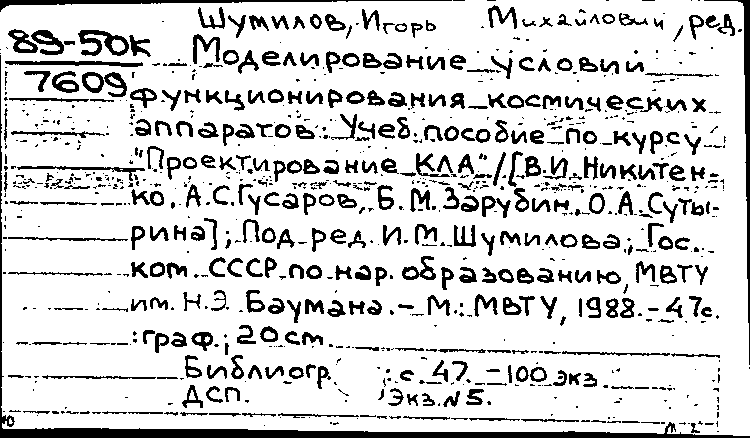 Шумилов, Игорь Михайлович, ред.
89-50К
7609
Моделирование условий
функционирования космических
аппаратов: Учеб. пособие по курсу
"Проектирование КЛА" / [В.И. Никитен-
ко, А.С. Гусаров, Б.М. Зарубин, О.А. Суты-
рина]; Под ред. И.М. Шумилова; Гос.
ком. СССР по нар. образованию, МВТУ
им. Н.Э. Баумана. – М.: МВТУ, 1988. – 47с.
: граф.; 20 cm.
Библиогр. : с. 47. – 100 экз.
ДСП. Экз. N 5.